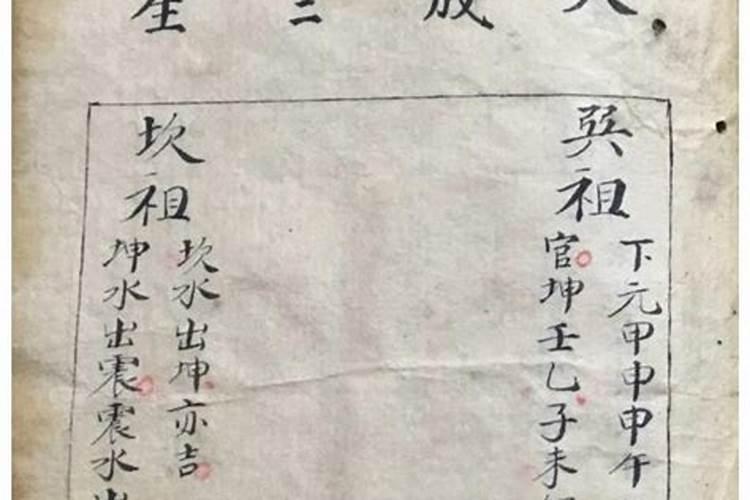 巽祖
下元甲申申午
官坤壬乙子未
坎祖
坎水出坤亦吉
坤水出震震水出